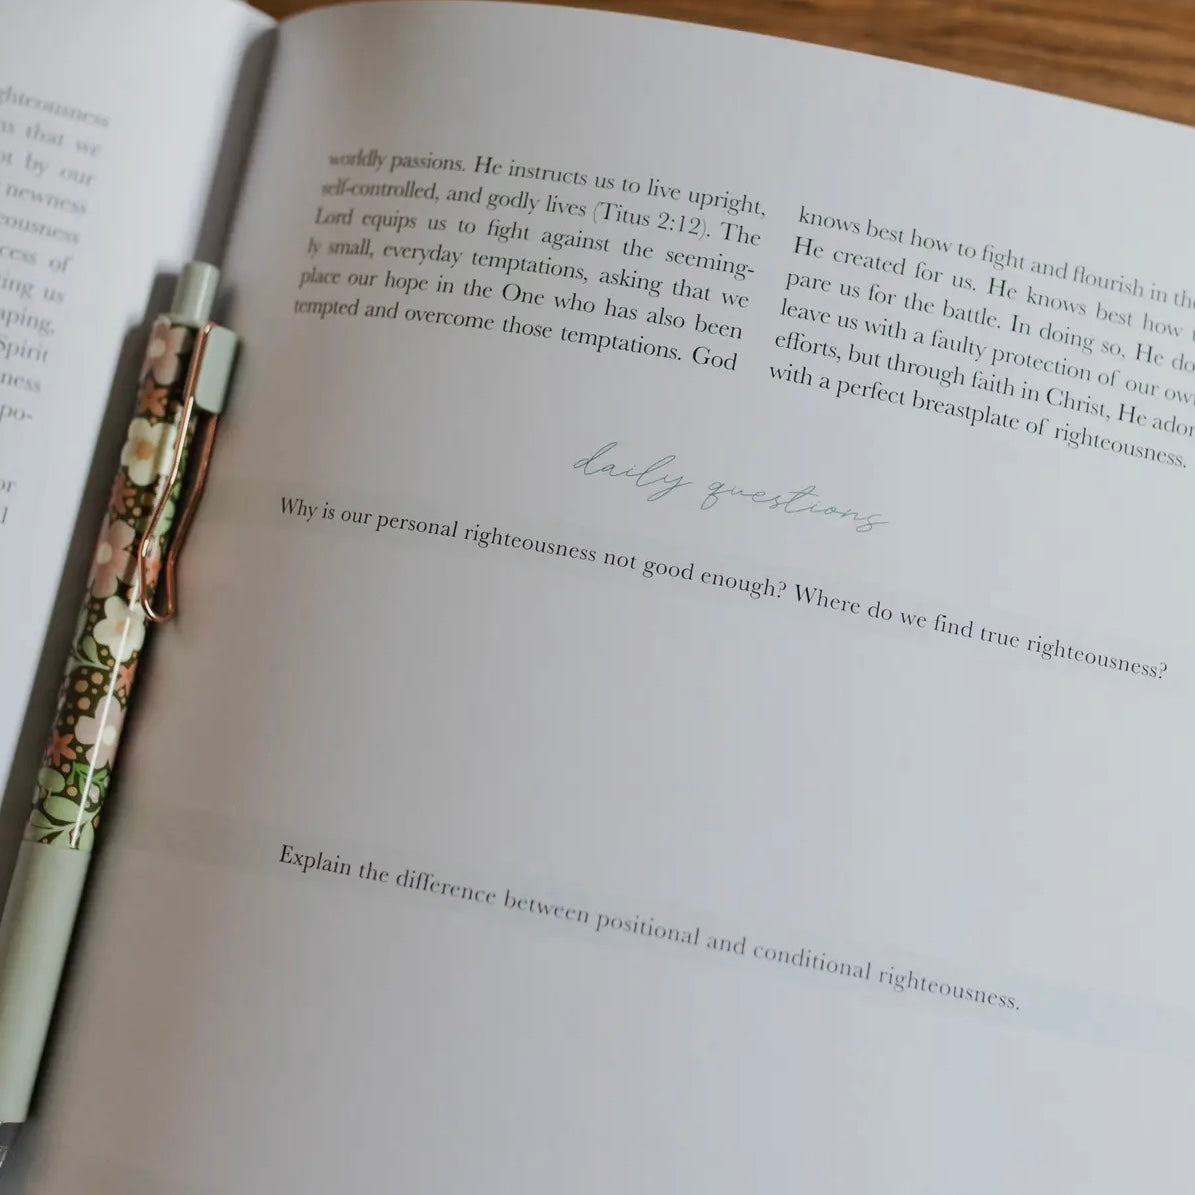 ghteousness
that we
by our
newness
eousness
cess of
ing us
aping,
Spirit
ness
po-
or
l
worldly passions. He instructs us to live upright,
self-controlled, and godly lives (Titus 2:12). The
Lord equips us to fight against the seeming-
ly small, everyday temptations, asking that we
place our hope in the One who has also been
tempted and overcome those temptations. God
knows best how to fight and flourish in the
He created for us. He knows best how
pare us for the battle. In doing so, He do
leave us with a faulty protection of our own
efforts, but through faith in Christ, He ador
with a perfect breastplate of righteousness.
daily questions
Why is our personal righteousness not good enough? Where do we find true righteousness?
Explain the difference between positional and conditional righteousness.